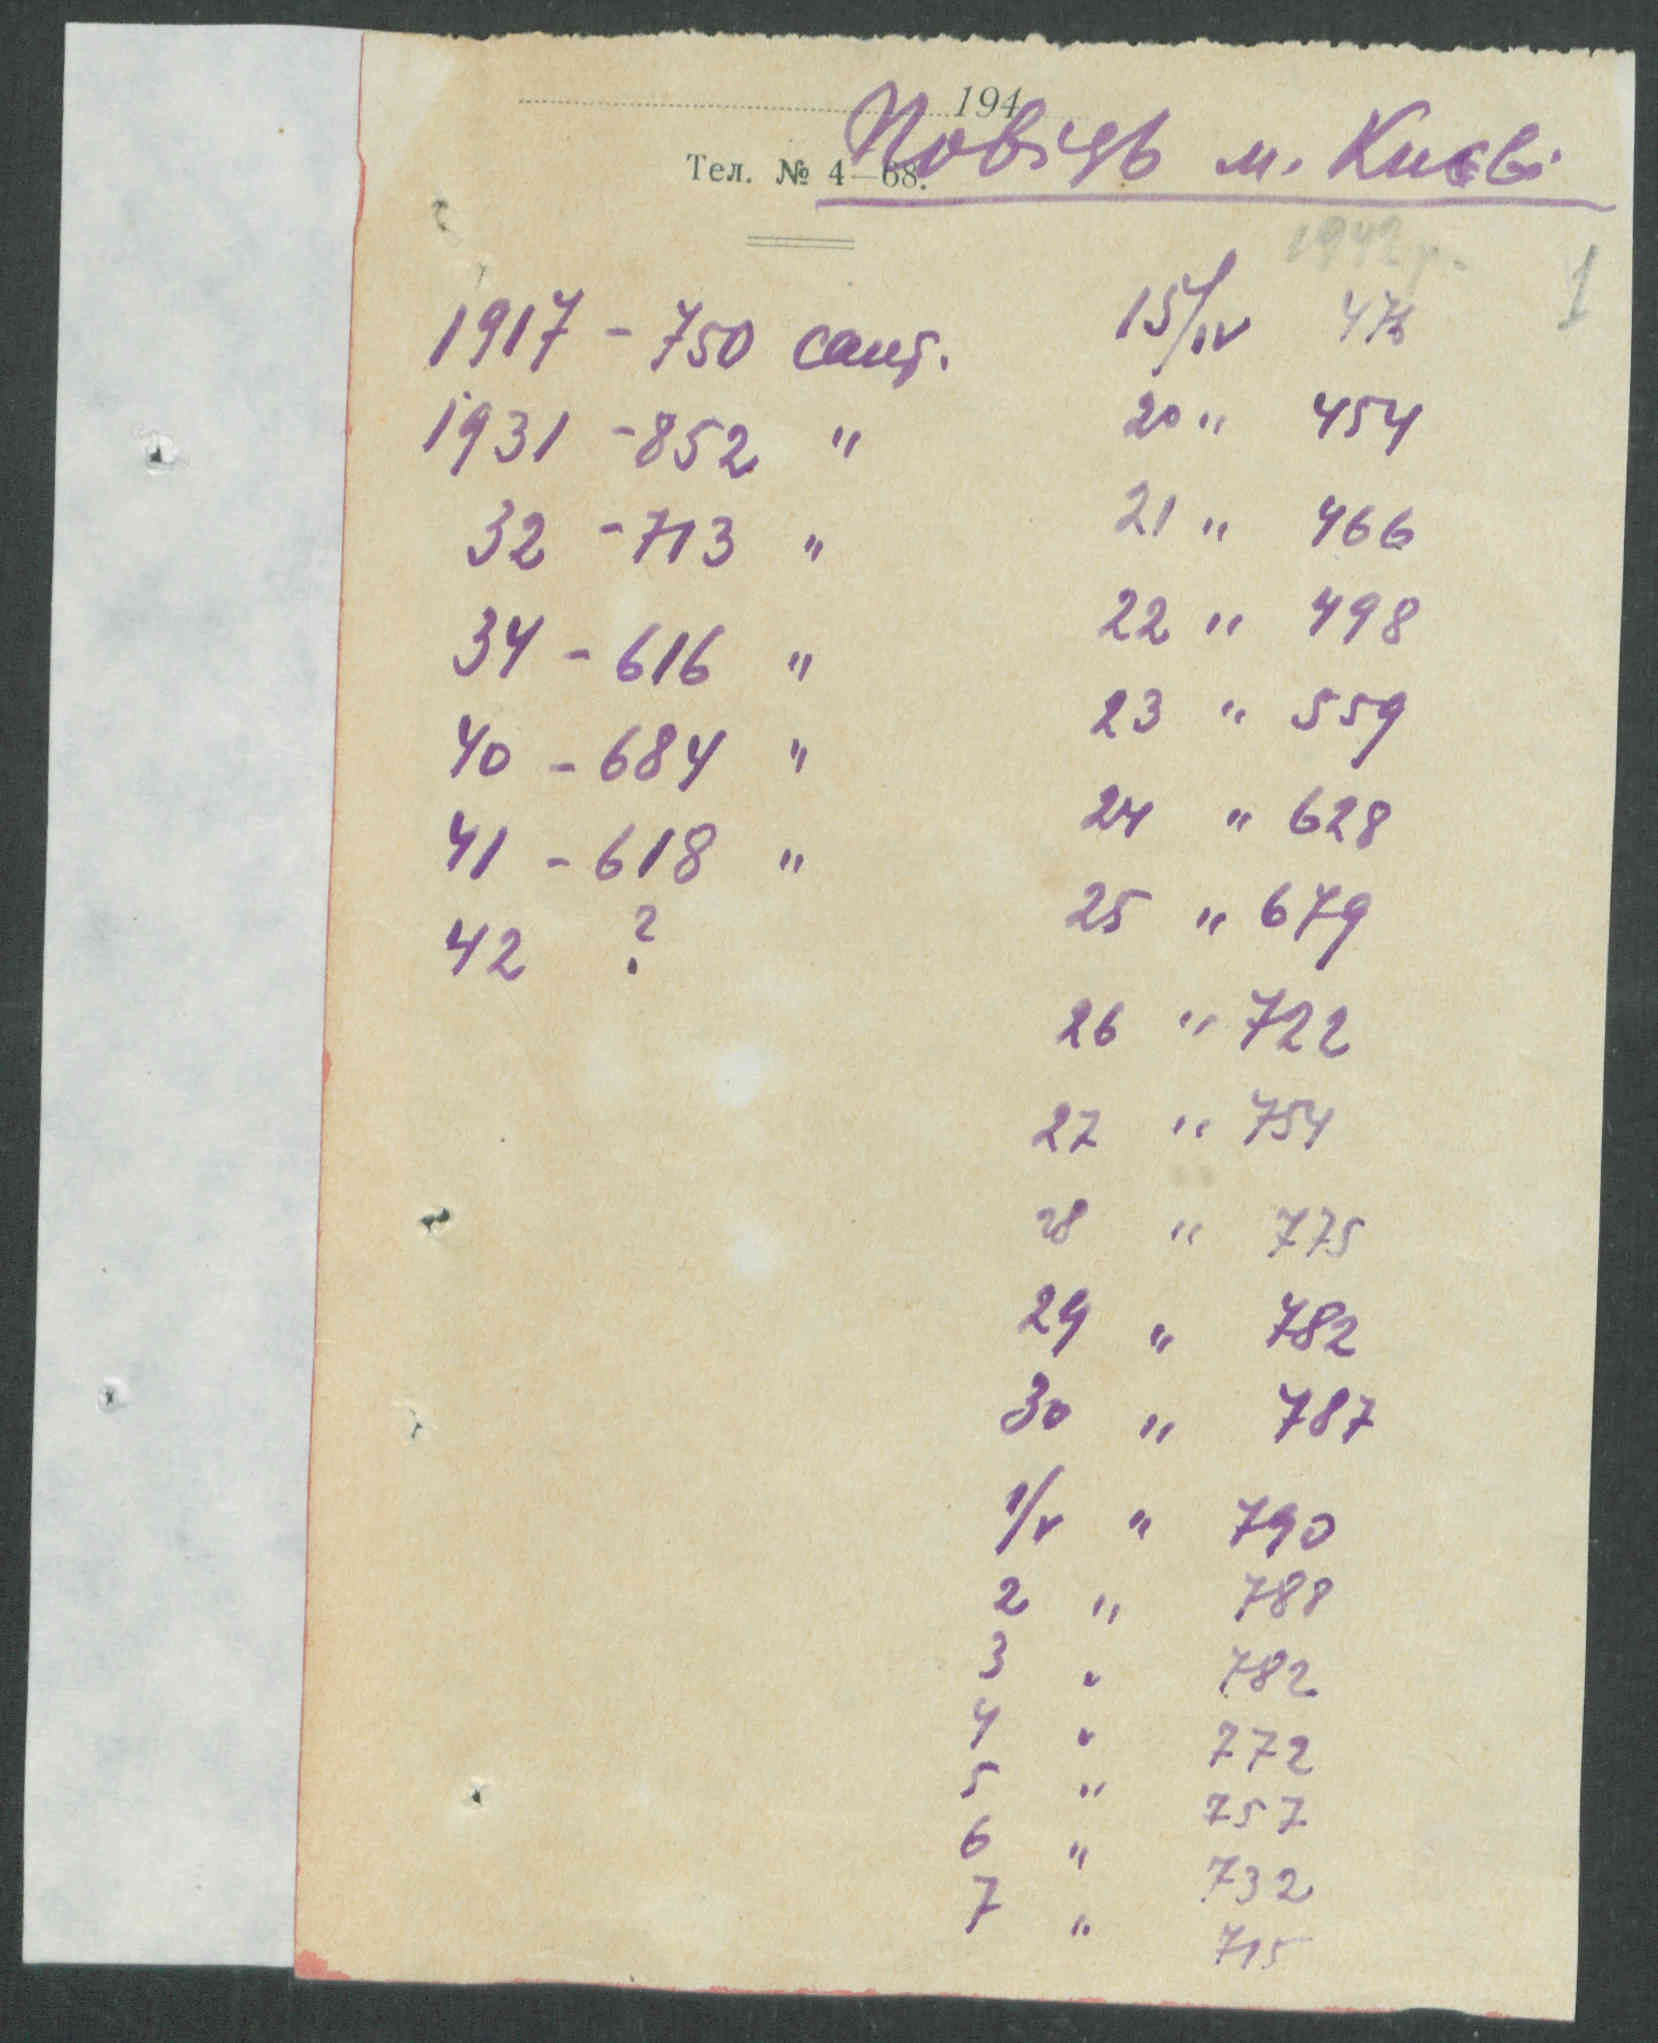 194
Тел. № 4—68.
Повідь м. Києві
1942 р.
1
1917 - 750 сант.
1931 - 852 "
32 - 713 "
34 - 616 "
40 - 684 "
41 - 618 "
42 ?
15/IV
20 " 454
21 " 466
22 " 498
23 " 559
24 " 628
25 " 679
26 " 722
27 " 754
28 " 775
29 " 782
30 " 787
1/V " 790
2 " 788
3 " 782
4 " 772
5 " 757
6 " 732
7 " 715